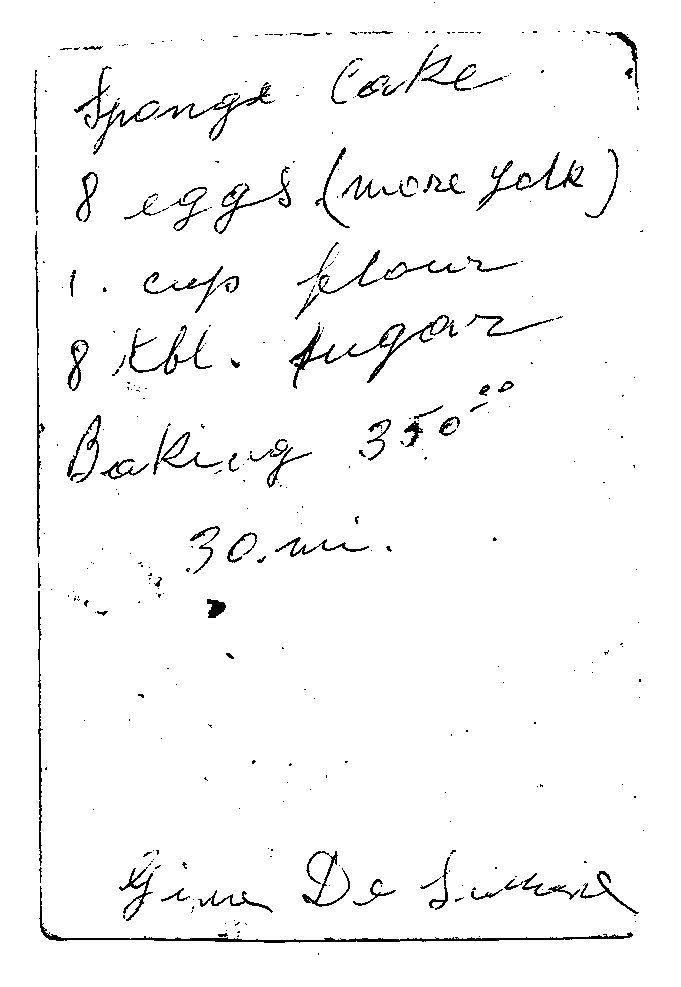 Sponge Cake
8 eggs (more yolk)
1. cup flour
8 tbl. sugar
Baking 350°°
30.mi.
Gina De Simone